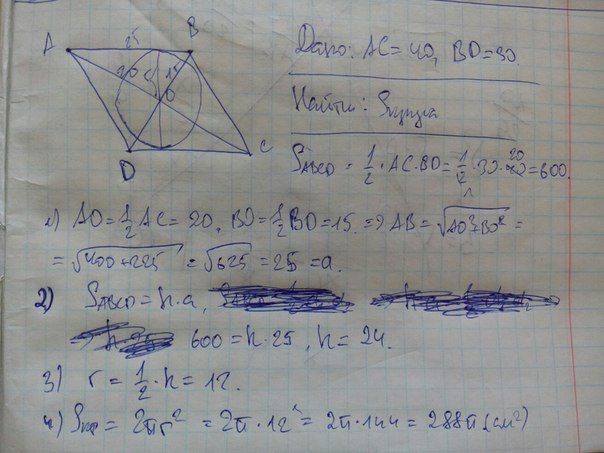 A 25 B
20 15
O
D C
Дано: AC=40, BD=30.
Найти: Sкруга
SABCD = 1/2 · AC · BD = 1/2 · 30 · 20 = 600.
1) AO = 1/2 AC = 20, BO = 1/2 BD = 15. => AB = √AO²+BO² =
= √400+225 = √625 = 25 = a.
2) SABCD = h·a,
600 = h·25, h = 24.
3) r = 1/2 · h = 12.
4) Sкр = 2πr² = 2π·12² = 2π·144 = 288π (см²)